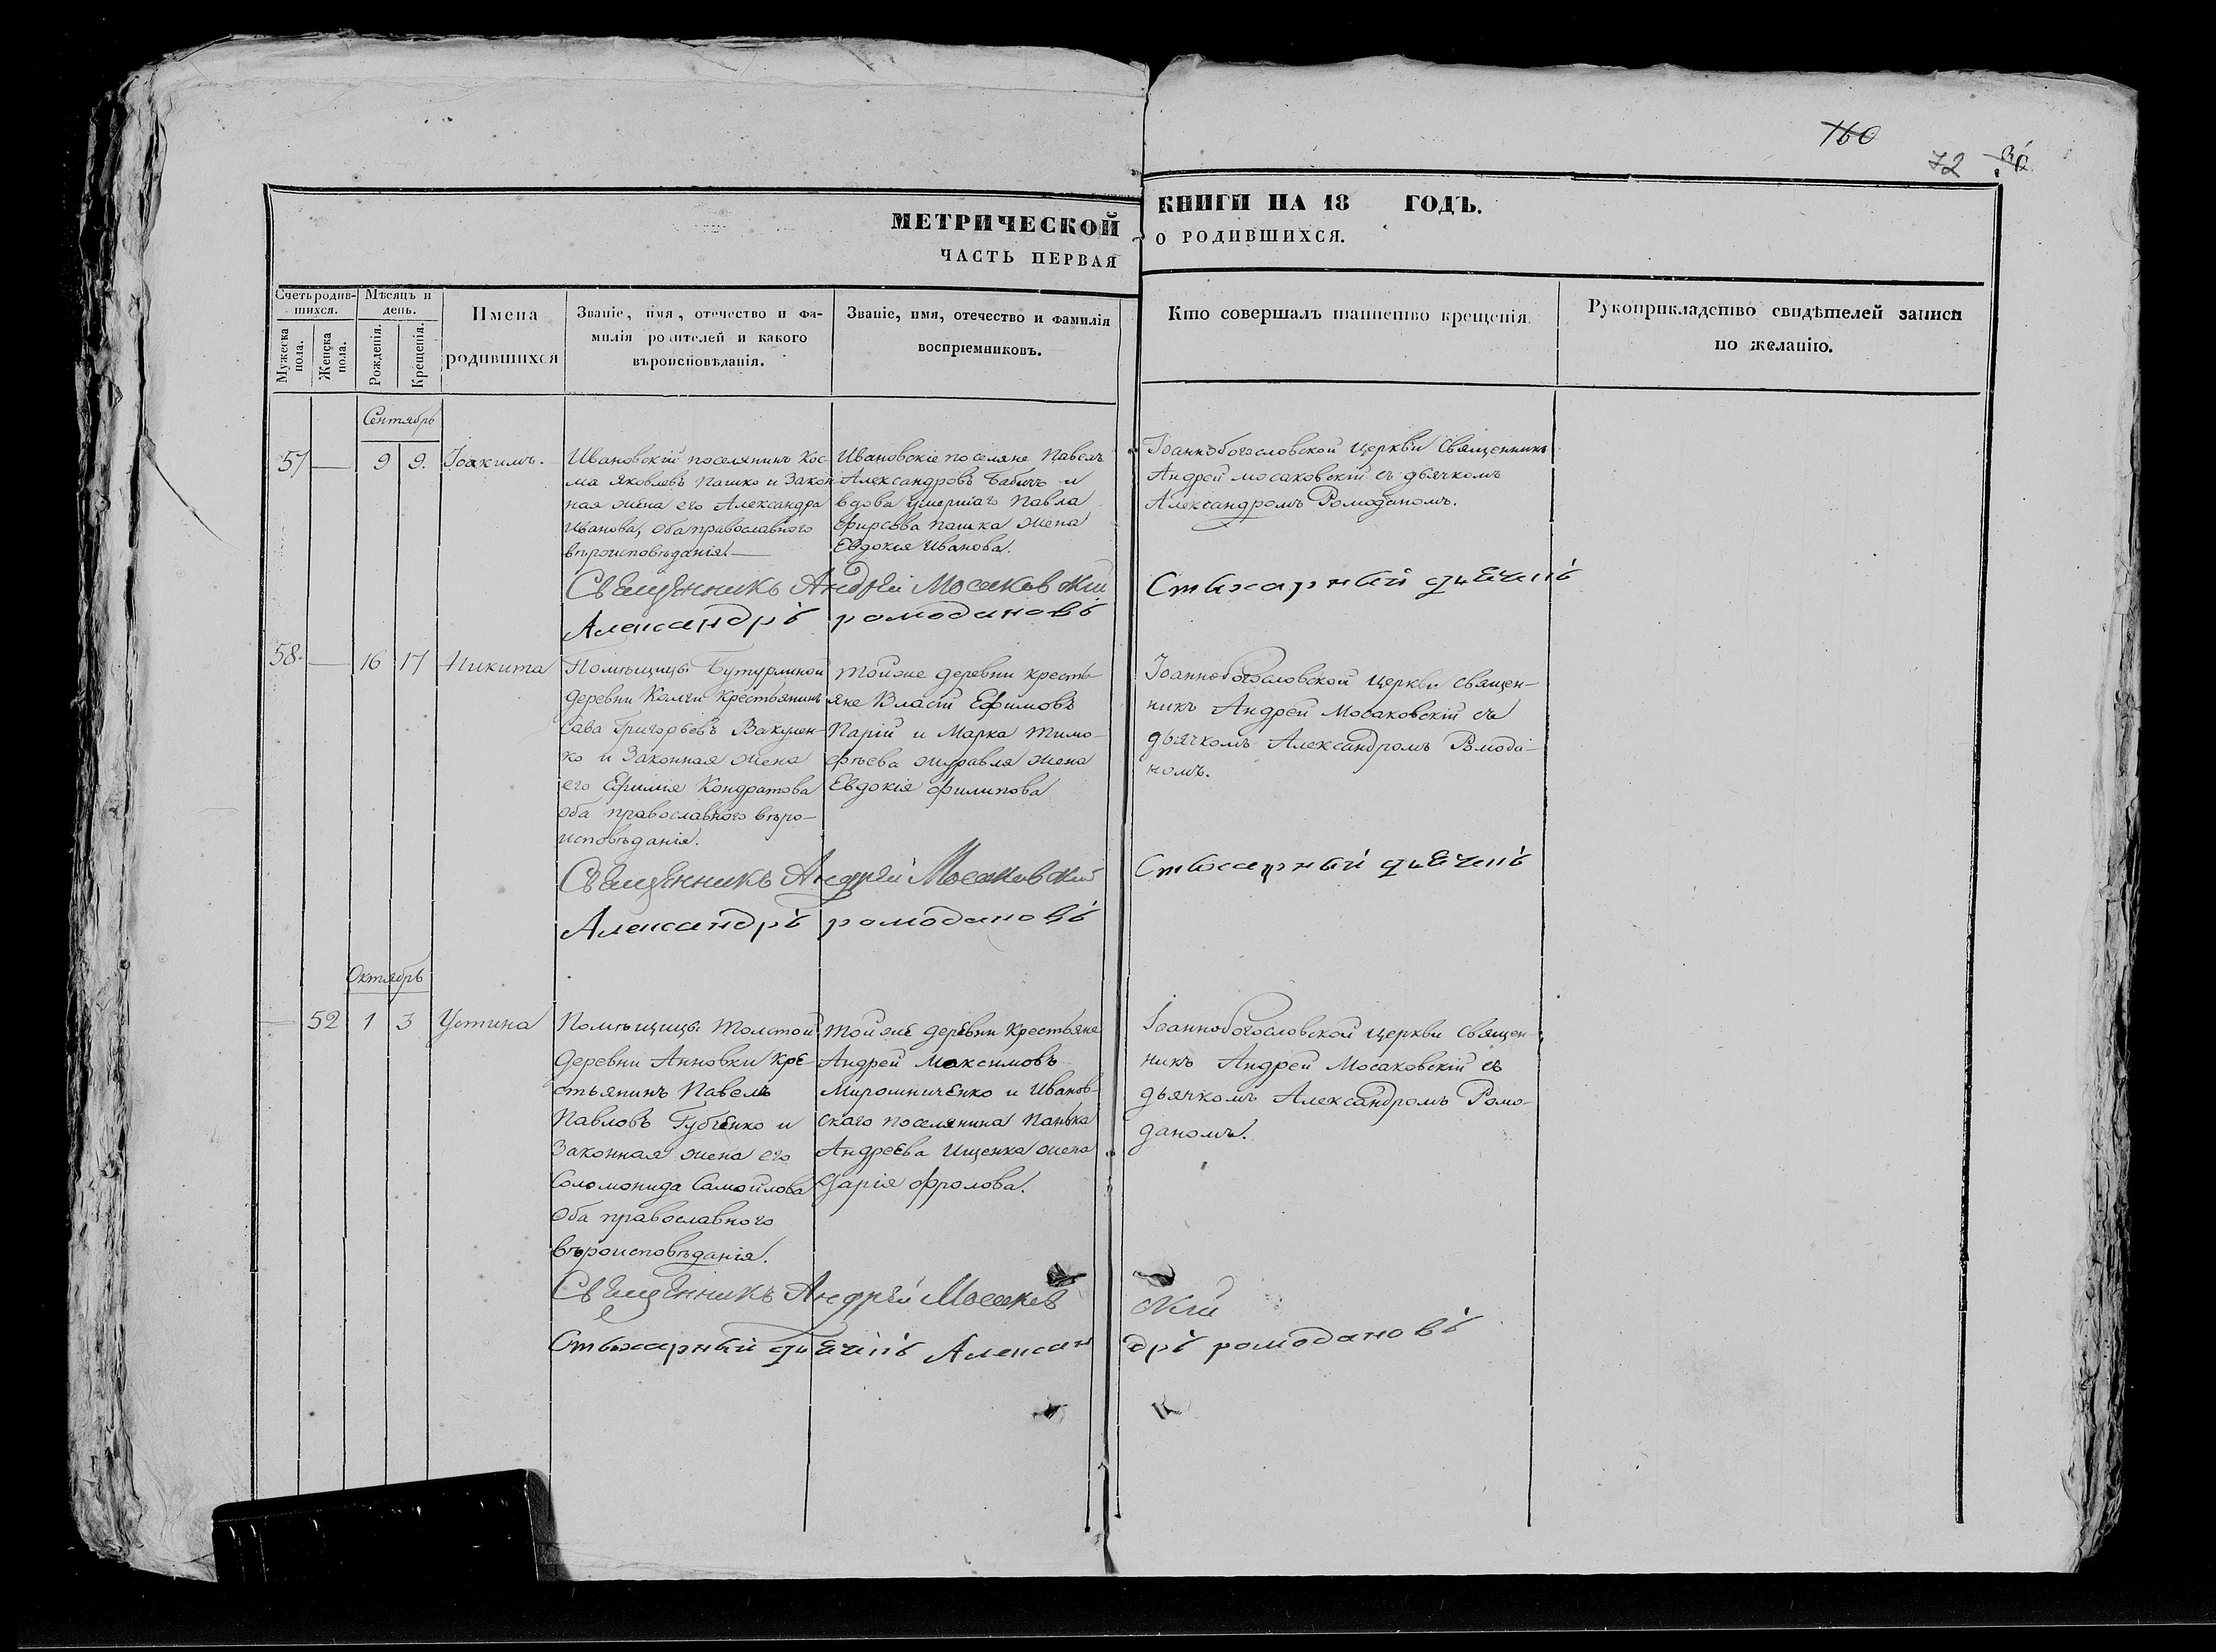 160
72
МЕТРИЧЕСКОЙ КНИГИ НА 18 ГОДЪ.
ЧАСТЬ ПЕРВАЯ О РОДИВШИХСЯ.
Счетъ родившихся.
Мужеска пола.
Женска пола.
Мѣсяцъ и день.
Рожденія.
Крещенія.
Имена родившихся
Званіе, имя, отечество и фа-
милія родителей и какого
вѣроисповѣданія.
Званіе, имя, отечество и фамилія
воспріемниковъ.
Кто совершалъ таинство крещенія.
Рукоприкладство свидѣтелей записи
по желанію.
Сентябрь
57 — 9 9. Іоакимъ.
Ивановскій поселянинъ Кос-
ма Яковлевъ Пашко и закон
ная жена его Александра
Иванова, оба православного
вѣроисповѣданія. —
Ивановскіе поселяне Павелъ
Александровъ Бабичъ и
вдова умершаго Павла
Фирсова Пашка жена
Евдокія Иванова.
Іоаннобогословской церкви Священникъ
Андрей Мосаковскій съ дьячкомъ
Александромъ Ромоданомъ.
Священникъ Андрей Мосаковскій Стихарный дьячокъ
Александръ ромодановъ
58. — 16 17 Никита
Помѣщицы Бутурлиной
деревни Калги крестьянинъ
Сава Григорьевъ Вакулен-
ко и законная жена
его Ефимія Кондратова
оба православного вѣро-
исповѣданія.
тойже деревни кресть-
яне Власій Ефимовъ
Парій и Марка Тимо-
фѣева Журавля жена
Евдокія Филипова
Іоаннобогословской церкви священ-
никъ Андрей Мосаковскій съ
дьячкомъ Александромъ Ромода-
номъ.
Священникъ Андрей Мосаковскій Стихарный дьячокъ
Александръ ромодановъ
Октябрь
— 52 1 3 Устина
Помѣщицы Толстой
деревни Анновки кре-
стьянинъ Павелъ
Павловъ Губенко и
законная жена его
Соломонида Самойлова
оба православного
вѣроисповѣданія.
тойже деревни крестьяне
Андрей Максимовъ
Мирошниченко и Иванов-
скаго поселянина Панька
Андреева Ищенка жена
Дарія Фролова.
Іоаннобогословской церкви священ-
никъ Андрей Мосаковскій съ
дьячкомъ Александромъ Ромо-
даномъ.
Священникъ Андрей Мосаковскій
Стихарный дьячокъ Александръ ромодановъ